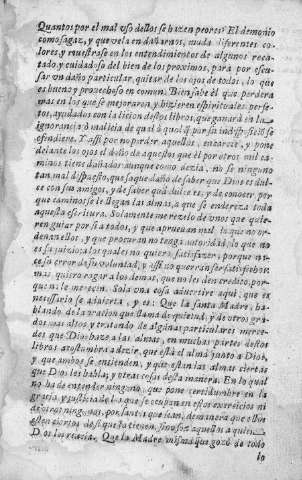 Quantos por el mal vso dellos se hazen peores? El demonio
como sagaz, y que vela en dañarnos, muda diferentes co-
lores, y muestrase en los entendimientos de algunos reca-
tado, y cuidadoso del bien de los proximos, para por escu-
sar vn daño particular, quitar de los ojos de todos, lo que
es bueno y prouechoso en comun. Bien sabe èl que perdera
mas en los que se mejoraron, y hizieren espirituales perfe-
tos, ayudados con la licion destos libros, que ganará en la
ignorancia ò malicia de qual ò qual que por su indisposicio se
ofendiere. Y assi por no perder aquellos, encarece, y pone
delante los ojos el daño de aquestos que èl por otros mil ca-
minos tiene dañados: aunque como dezia, no se ninguno
tan mal dispuesto, que saque daño de saber que Dios es dul-
ce con sus amigos, y de saber quā dulce es, y de conocer por
que caminos se le llegan las almas, a que se endereza toda
aquesta escritura. Solamente me rezelo de vnos que quie-
ren guiar por si a todos, y que aprueuan mal, lo que no or-
denan ellos, y que procuran no tenga autoridad, lo que no
es su juizio: a los quales no quiero satisfazer, porque na-
ce su error de su voluntad, y assi no querran ser satisfechos:
mas quiero rogar a los demas, que no les den credito, por-
que no le merecen. Sola vna cosa aduertire aqui, que es
necessario se aduierta, y es: Que la santa Madre, ha-
blando de la oracion que llama de quietud, y de otros gra-
dos mas altos, y tratando de algunas particulares merce-
des que Dios haze a las almas, en muchas partes destos
libros acostumbra a dezir, que està el alma junto a Dios,
y que ambos se entienden, y que están las almas ciertas
que Dios les habla, y otras cosas desta manera. En lo qual
no ha de entender ninguno, que pone certidumbre en la
gracia, y justicia de los que se ocupan en estos exercicios ni
de otros ningunos, por santos que sean, de manera que ellos
esten ciertos de si que la tienen, sino son aquellos a quien
Dios lo reuela. Que la Madre misma que gozó de todo
lo